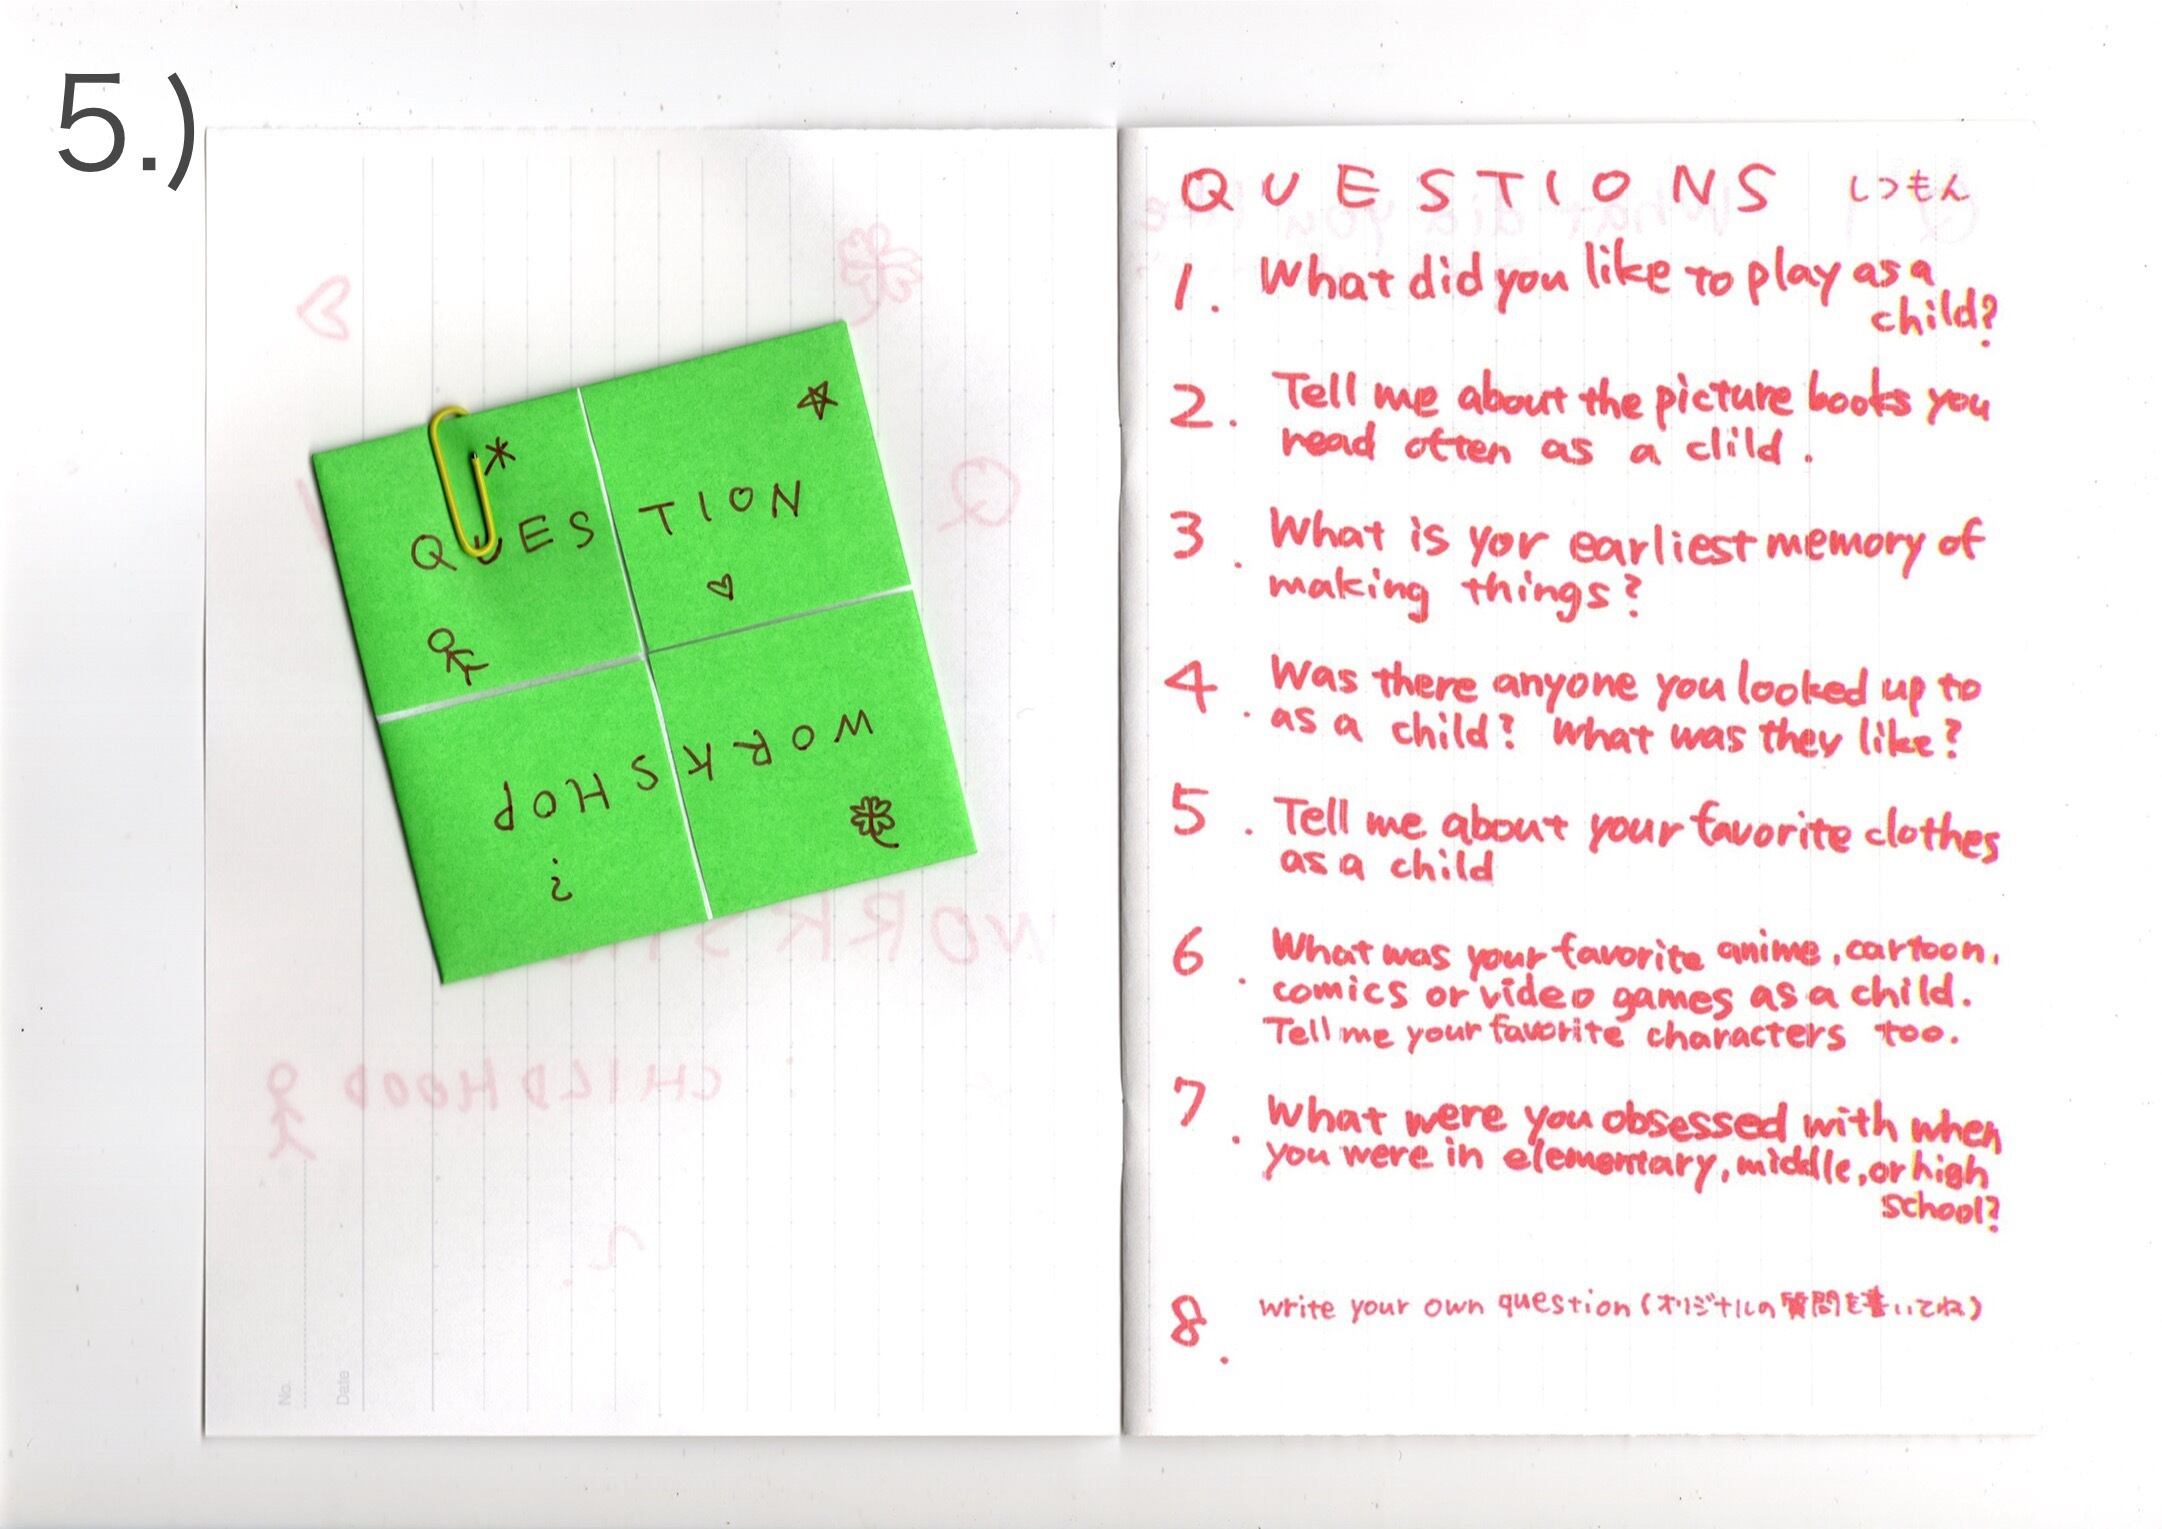 5.)
QUESTION
WORKSHOP
?
No.
Date
WORKS
CHILDHOOD
QUESTIONS しつもん
1. What did you like to play as a
child?
2. Tell me about the picture books you
read often as a clild.
3. What is yor earliest memory of
making things?
4. Was there anyone you looked up to
as a child? What was they like?
5. Tell me about your favorite clothes
as a child
6. What was your favorite anime, cartoon,
comics or video games as a child.
Tell me your favorite characters too.
7. What were you obsessed with when
you were in elementary, middle, or high
school?
8. write your own question (オリジナルの質問を書いてね)